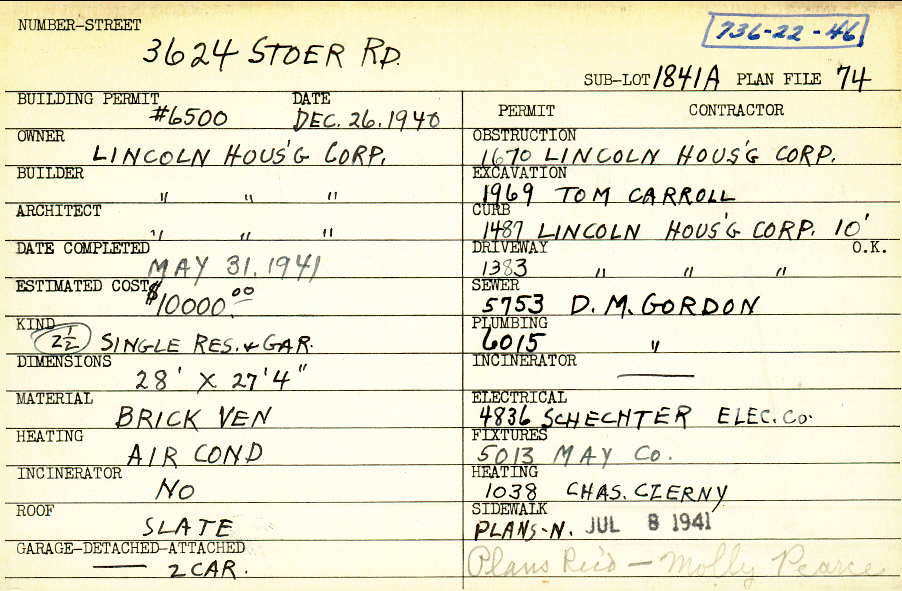 NUMBER-STREET
3624 STOER RD.
736-22-46
SUB-LOT 1841A PLAN FILE 74
BUILDING PERMIT DATE
#6500 DEC. 26. 1940
OWNER
LINCOLN HOUS'G CORP.
BUILDER
" " "
ARCHITECT
" " "
DATE COMPLETED
MAY 31. 1941
ESTIMATED COST
$10000.00
KIND
2 1/2 SINGLE RES. & GAR.
DIMENSIONS
28' X 27'4"
MATERIAL
BRICK VEN
HEATING
AIR COND
INCINERATOR
NO
ROOF
SLATE
GARAGE-DETACHED-ATTACHED
— 2 CAR.
PERMIT CONTRACTOR
OBSTRUCTION
1670 LINCOLN HOUS'G CORP.
EXCAVATION
1969 TOM CARROLL
CURB
1487 LINCOLN HOUS'G CORP. 10'
DRIVEWAY O.K.
1383 " " "
SEWER
5753 D.M. GORDON
PLUMBING
6015 "
INCINERATOR
—
ELECTRICAL
4836 SCHECHTER ELEC. CO.
FIXTURES
5013 MAY CO.
HEATING
1038 CHAS. CZERNY
SIDEWALK
PLANS-N. JUL 8 1941
Plans Rec'd — Molly Pearce